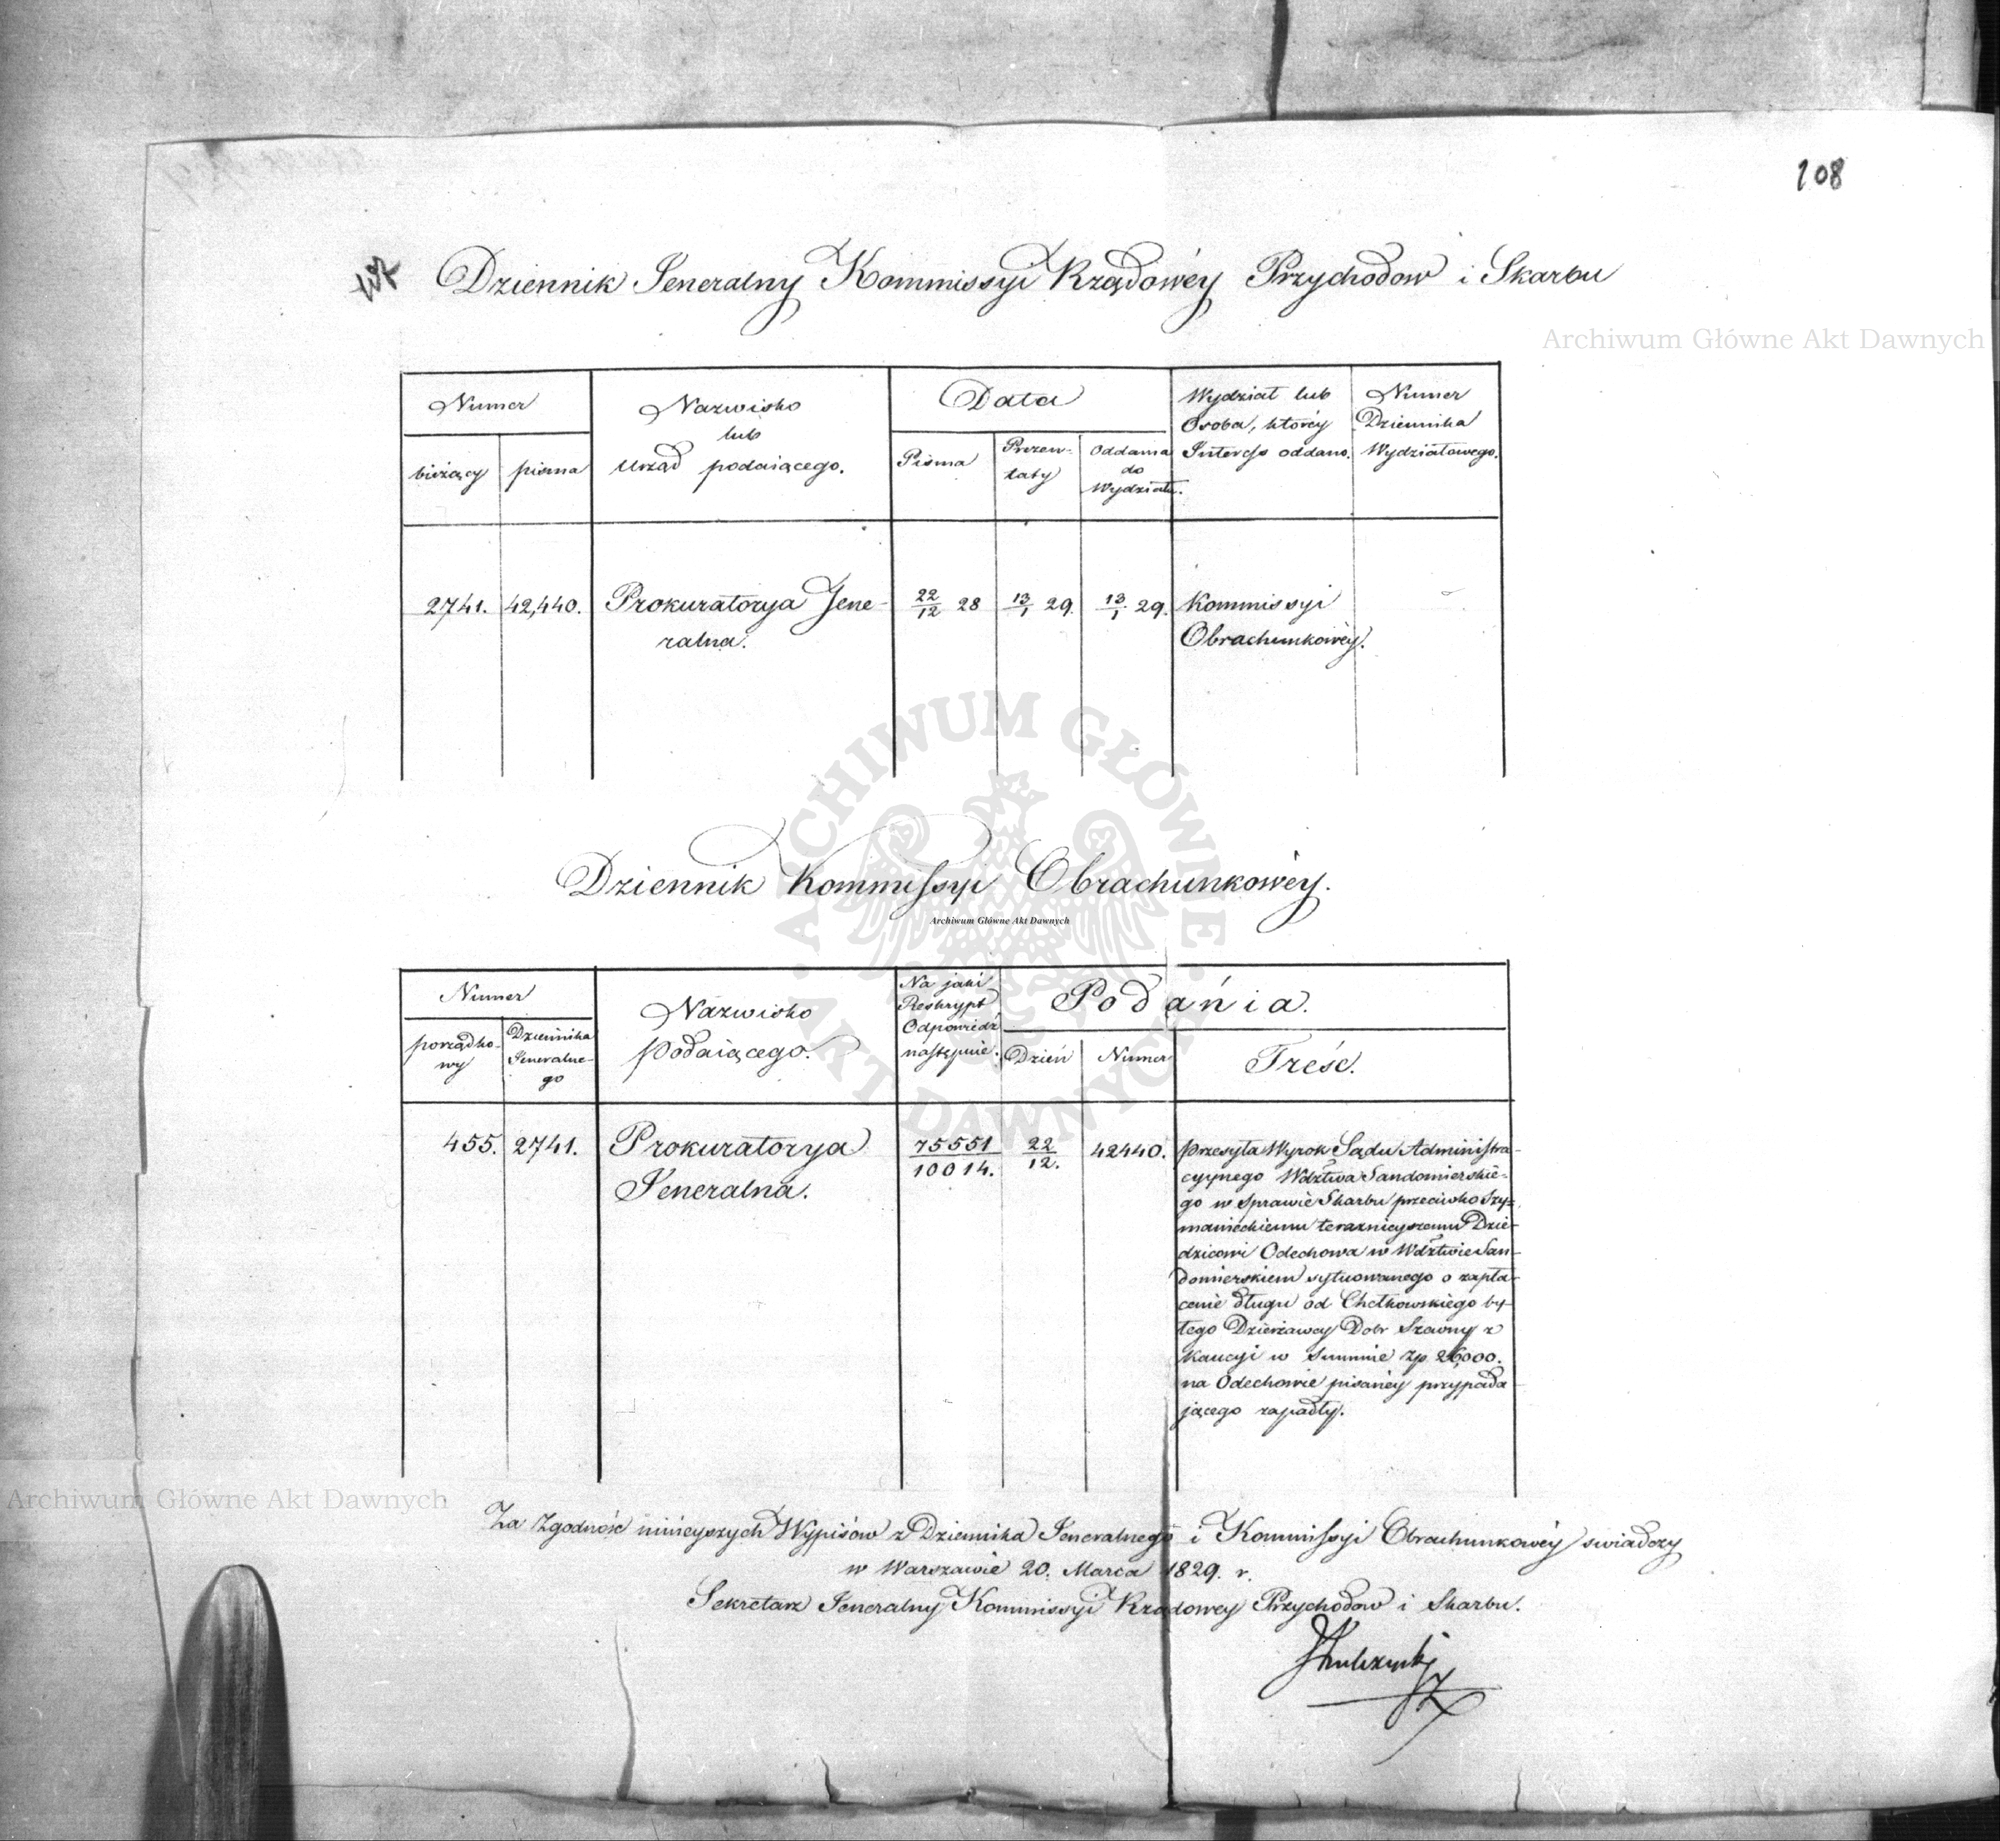 108
Dziennik Jeneralny Kommissyi Rządowéy Przychodow i Skarbu
Archiwum Główne Akt Dawnych
Numer
bieżący
pisma
Nazwisko
lub
Urząd podaiącego.
Data
Pisma
Prezen-
taty
Oddania
do
Wydziału.
Wydział lub
Osoba, któréy
Interess oddano.
Numer
Dziennika
Wydziałowego.
2741.
42,440.
Prokuratorya Jene-
ralna.
22/12 28
13/1 29.
13/1 29.
Kommissyi
Obrachunkowéy.
ARCHIWUM GŁÓWNE · AKT DAWNYCH ·
Dziennik Kommissyi Obrachunkowéy.
Archiwum Główne Akt Dawnych
Numer
porządko-
wy
Dziennika
Jeneralne-
go
Nazwisko
podaiącego.
Na jaki
Reskrypt
Odpowiedź
następuie.
Podánia.
Dzień
Numer
Treść.
455.
2741.
Prokuratorya
Jeneralna.
75551
10014.
22
12.
42440.
Przesyła Wyrok Sądu Administra-
cyynego Wdztwa Sandomierskie-
go w sprawie Skarbu przeciwko Szy-
manieckiemu teraznieyszemu Dzie-
dzicowi Odechowa w Wdztwie San-
domierskiem sytuowanego o zapła-
cenie długu od Chełkowskiego by-
łego Dzierżawcy Dobr Szawny z
Kaucyi w Summie zp. 26,000.
na Odechowie pisanéy przypada-
jącego zapadły.
Archiwum Główne Akt Dawnych
Za Zgodność ninieyszych Wypisów z Dziennika Jeneralnego i Kommissyi Obrachunkowéy swiadczy
w Warszawie 20. Marca 1829. r.
Sekretarz Jeneralny Kommissyi Rządowey Przychodow i Skarbu.